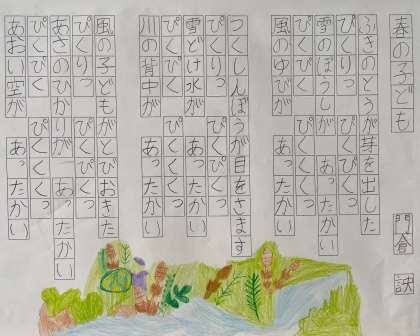 春の子ども
門倉 訣
ふきのとうが芽を出した
ぴくりっ ぴくくっ
雪のぼうしが あったかい
ぴくぴく ぴくくくっ
風のゆびが あったかい
つくしんぼうが目をさます
ぴくりっ ぴくくっ
雪どけ水が あったかい
ぴくぴく ぴくくくっ
川の背中が あったかい
風の子どもがとびおきた
ぴくりっ ぴくぴくっ
あさのひかりが あったかい
ぴくぴく ぴくくくっ
あおい空が あったかい